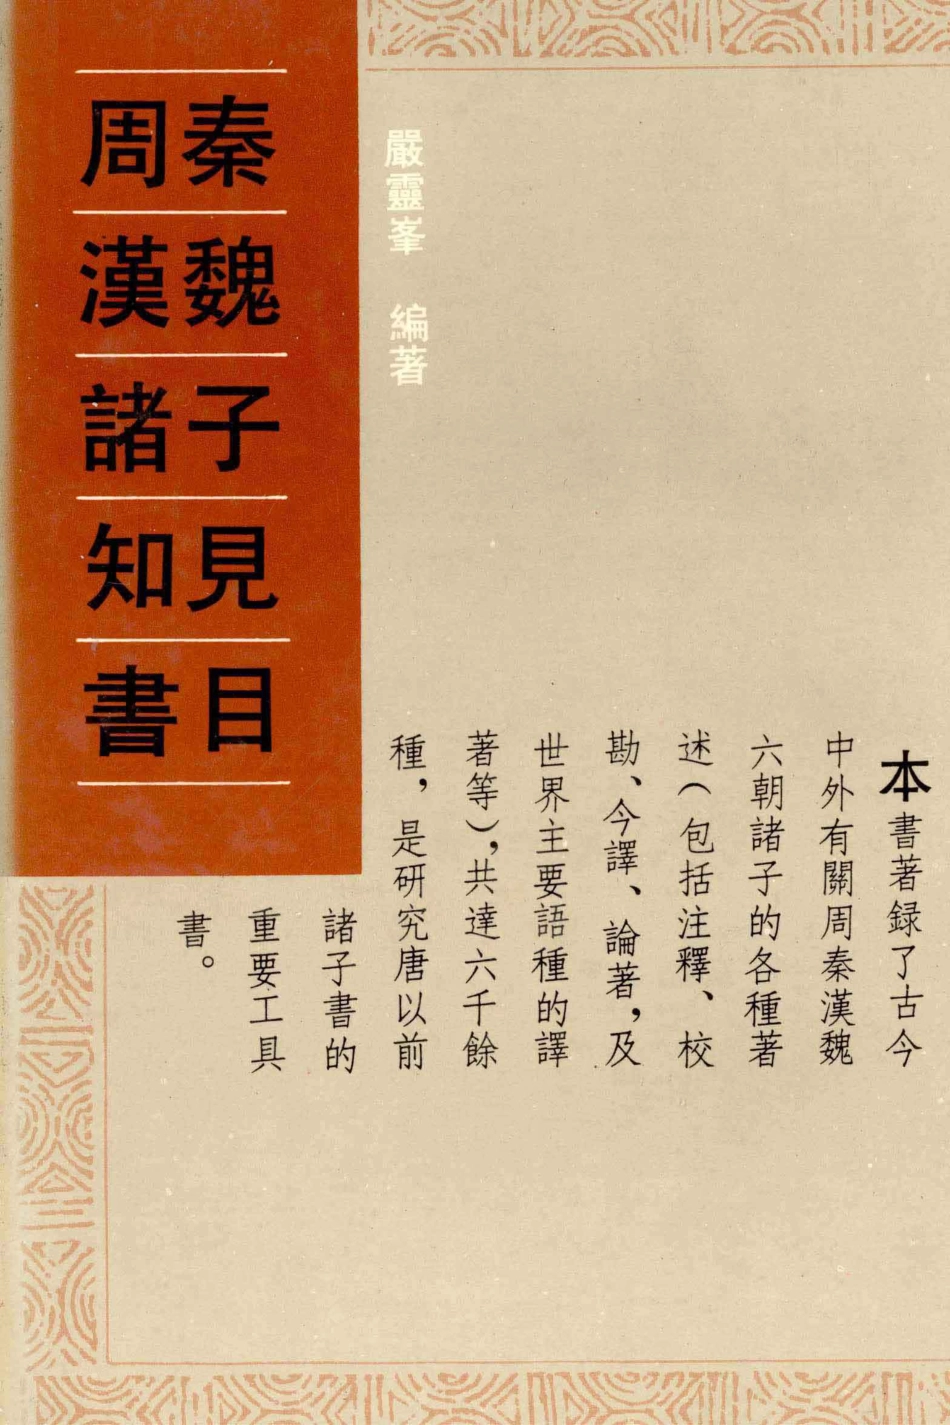 周秦
漢魏
諸子
知見
書目
嚴靈峯 編著
本書著録了古今
中外有關周秦漢魏
六朝諸子的各種著
述（包括注釋、校
勘、今譯、論著，及
世界主要語種的譯
著等），共達六千餘
種，是研究唐以前
諸子書的
重要工具
書。